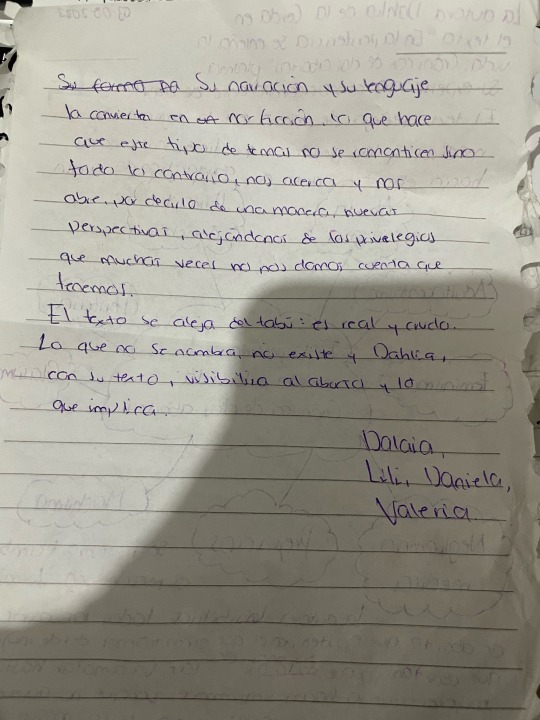 Su narración y su lenguaje
la convierten en no ficción, lo que hace
que ese tipo de temas no se romanticen sino
todo lo contrario, nos acerca y nos
abre, por decirlo de una manera, nuevas
perspectivas, alejándonos de los privelegios
que muchas veces no nos damos cuenta que
tenemos.
El texto se aleja del tabú: es real y crudo.
Lo que no se nombra, no existe y Dahlia,
con su texto, visibiliza al aborto y lo
que implica.
Dalaia,
Lili, Daniela,
Valeria